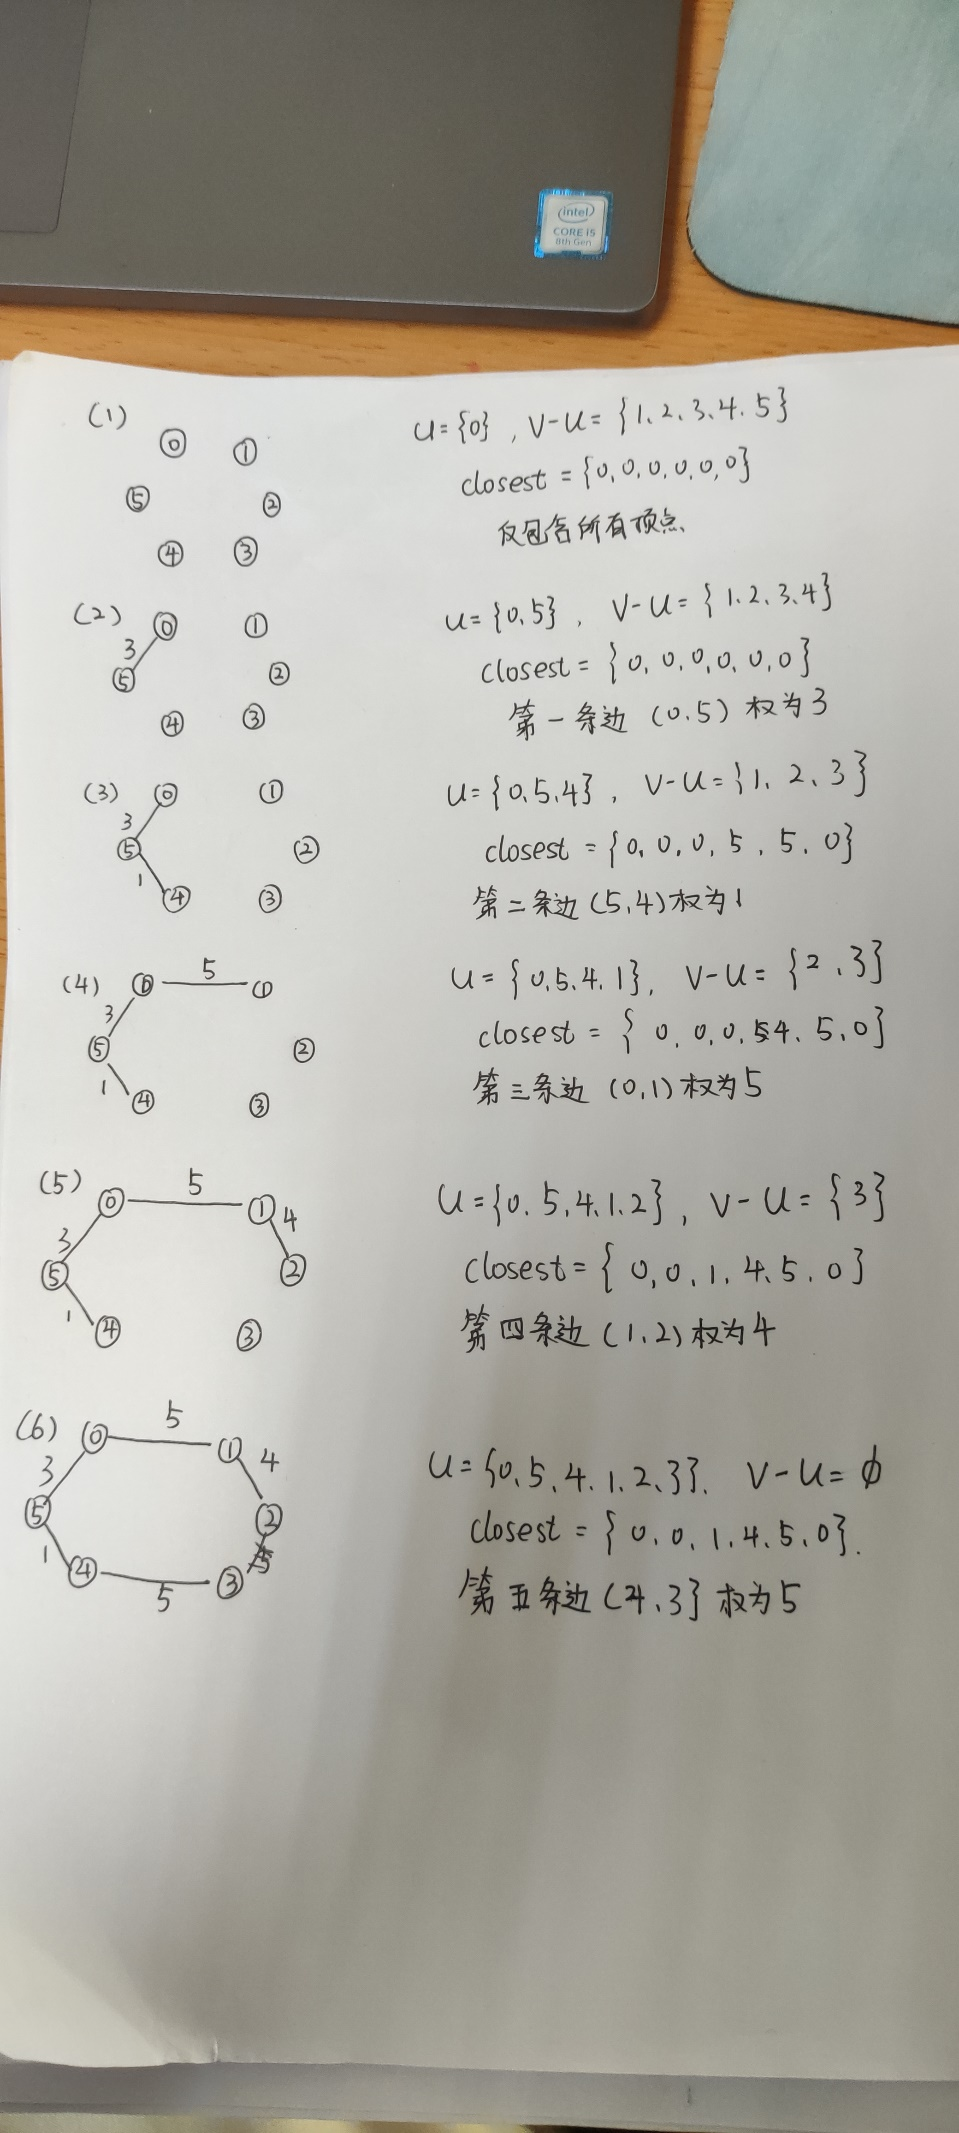 intel
CORE i5
8th Gen
(1) 0 1 5 2 4 3
U={0}, V-U={1、2、3、4、5}
closest={0,0,0,0,0,0}
仅包含所有顶点
(2) 0 1 3 5 2 4 3
U={0、5}, V-U={1、2、3、4}
closest={0,0,0,0,0,0}
第一条边(0、5)权为3
(3) 0 1 3 5 2 1 4 3
U={0,5,4}, V-U={1、2、3}
closest={0,0,0,5,5,0}
第二条边(5,4)权为1
(4) 0 5 1 3 5 2 1 4 3
U={0、5、4、1}, V-U={2、3}
closest={0,0,0,4、5、0}
第三条边(0,1)权为5
(5) 0 5 1 4 3 5 2 1 4 3
U={0、5、4、1、2}, V-U={3}
closest={0,0,1、4、5、0}
第四条边(1、2)权为4
(6) 0 5 1 4 3 5 2 1 4 5 3
U={0、5、4、1、2、3}. V-U=∅
closest={0、0、1、4、5、0}.
第五条边(4、3}权为5